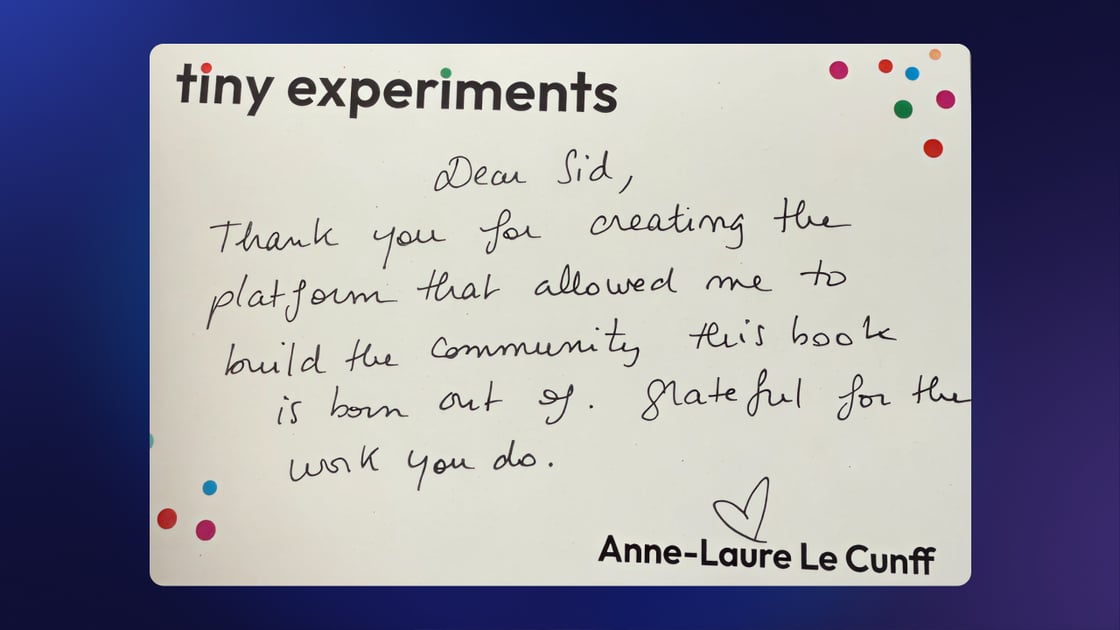 tiny experiments
Dear Sid,
Thank you for creating the
platform that allowed me to
build the community this book
is born out of. Grateful for the
work you do.
Anne-Laure Le Cunff